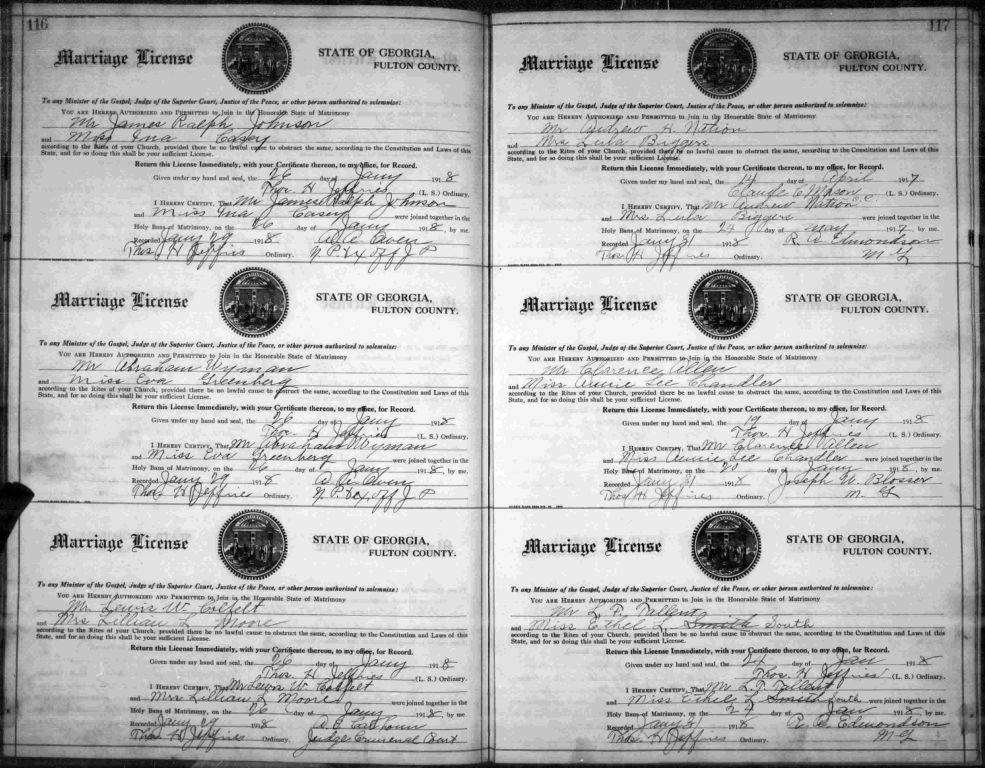 116
Marriage License
STATE OF GEORGIA,
FULTON COUNTY.
To any Minister of the Gospel, Judge of the Superior Court, Justice of the Peace, or other person authorized to solemnize:
YOU ARE HEREBY AUTHORIZED AND PERMITTED to Join in the Honorable State of Matrimony
Mr James Ralph Johnson
and Miss Ina Casey
according to the Rites of your Church, provided there be no lawful cause to obstruct the same, according to the Constitution and Laws of this
State, and for so doing this shall be your sufficient License.
Return this License Immediately, with your Certificate thereon, to my office, for Record.
Given under my hand and seal, the 26 day of Jany 1918
Thos. H Jeffries (L. S.) Ordinary.
I HEREBY CERTIFY, That Mr James Ralph Johnson
and Miss Ina Casey were joined together in the
Holy Bans of Matrimony, on the 26 day of Jany 1918, by me.
Recorded Jany 29 1918 Owen
Thos H Jeffries Ordinary. N P & Ex off J P
Marriage License
STATE OF GEORGIA,
FULTON COUNTY.
To any Minister of the Gospel, Judge of the Superior Court, Justice of the Peace, or other person authorized to solemnize:
YOU ARE HEREBY AUTHORIZED AND PERMITTED to Join in the Honorable State of Matrimony
Mr Abraham Wyman
and Miss Eva Greenberg
according to the Rites of your Church, provided there be no lawful cause to obstruct the same, according to the Constitution and Laws of this
State, and for so doing this shall be your sufficient License.
Return this License Immediately, with your Certificate thereon, to my office, for Record.
Given under my hand and seal, the 26 day of Jany 1918
Thos. H Jeffries (L. S.) Ordinary.
I HEREBY CERTIFY, That Mr Abraham Wyman
and Miss Eva Greenberg were joined together in the
Holy Bans of Matrimony, on the 26 day of Jany 1918, by me.
Recorded Jany 29 1918 Owen
Thos H Jeffries Ordinary. N P & Ex off J P
Marriage License
STATE OF GEORGIA,
FULTON COUNTY.
To any Minister of the Gospel, Judge of the Superior Court, Justice of the Peace, or other person authorized to solemnize:
YOU ARE HEREBY AUTHORIZED AND PERMITTED to Join in the Honorable State of Matrimony
Mr Lewis W. Colfelt
and Mrs Lillian L Moore
according to the Rites of your Church, provided there be no lawful cause to obstruct the same, according to the Constitution and Laws of this
State, and for so doing this shall be your sufficient License.
Return this License Immediately, with your Certificate thereon, to my office, for Record.
Given under my hand and seal, the 26 day of Jany 1918
Thos. H Jeffries (L. S.) Ordinary.
I HEREBY CERTIFY, That Mr Lewis W. Colfelt
and Mrs Lillian L Moore were joined together in the
Holy Bans of Matrimony, on the 26 day of Jany 1918, by me.
Recorded Jany 29 1918 Calhoun
Thos H Jeffries Ordinary. Judge Criminal Court
117
Marriage License
STATE OF GEORGIA,
FULTON COUNTY.
To any Minister of the Gospel, Judge of the Superior Court, Justice of the Peace, or other person authorized to solemnize:
YOU ARE HEREBY AUTHORIZED AND PERMITTED to Join in the Honorable State of Matrimony
Mr Andrew H Nition
and Mrs Lula Biggers
according to the Rites of your Church, provided there be no lawful cause to obstruct the same, according to the Constitution and Laws of this
State, and for so doing this shall be your sufficient License.
Return this License Immediately, with your Certificate thereon, to my office, for Record.
Given under my hand and seal, the 14 day of April 1917
Claude C Mason (L. S.) Ordinary.
I HEREBY CERTIFY, That Mr Andrew Nition
and Mrs. Lula Biggers were joined together in the
Holy Bans of Matrimony, on the 24 day of May 1917, by me.
Recorded Jany 31 1918 R. A Edmondson
Thos H Jeffries Ordinary. M G
Marriage License
STATE OF GEORGIA,
FULTON COUNTY.
To any Minister of the Gospel, Judge of the Superior Court, Justice of the Peace, or other person authorized to solemnize:
YOU ARE HEREBY AUTHORIZED AND PERMITTED to Join in the Honorable State of Matrimony
Mr Clarence Allen
and Miss Annie Lee Chandler
according to the Rites of your Church, provided there be no lawful cause to obstruct the same, according to the Constitution and Laws of this
State, and for so doing this shall be your sufficient License.
Return this License Immediately, with your Certificate thereon, to my office, for Record.
Given under my hand and seal, the 19 day of Jany 1918
Thos. H Jeffries (L. S.) Ordinary.
I HEREBY CERTIFY, That Mr Clarence Allen
and Miss Annie Lee Chandler were joined together in the
Holy Bans of Matrimony, on the 20 day of Jany 1918, by me.
Recorded Jany 31 1918 Joseph W. Blosser
Thos H Jeffries Ordinary. M. G
Marriage License
STATE OF GEORGIA,
FULTON COUNTY.
To any Minister of the Gospel, Judge of the Superior Court, Justice of the Peace, or other person authorized to solemnize:
YOU ARE HEREBY AUTHORIZED AND PERMITTED to Join in the Honorable State of Matrimony
Mr L. P. Tallent
and Miss Ethel L Smith South
according to the Rites of your Church, provided there be no lawful cause to obstruct the same, according to the Constitution and Laws of this
State, and for so doing this shall be your sufficient License.
Return this License Immediately, with your Certificate thereon, to my office, for Record.
Given under my hand and seal, the 24 day of Jan 1918
Thos. H Jeffries (L. S.) Ordinary.
I HEREBY CERTIFY, That Mr L. P. Tallent
and Miss Ethel L Smith South were joined together in the
Holy Bans of Matrimony, on the 24 day of Jan 1918, by me.
Recorded Jany 31 1918 R. A Edmondson
Thos H Jeffries Ordinary. M G